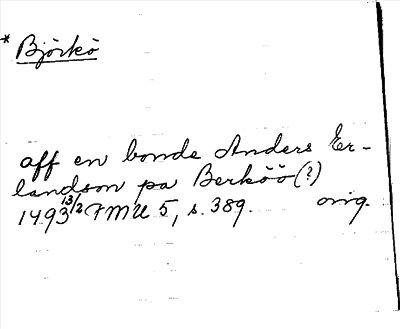 * Björkö
aff en bonde Anders Er-
landson pa Berköö (?)
1493 13/2 FMU 5, s. 389. orig.